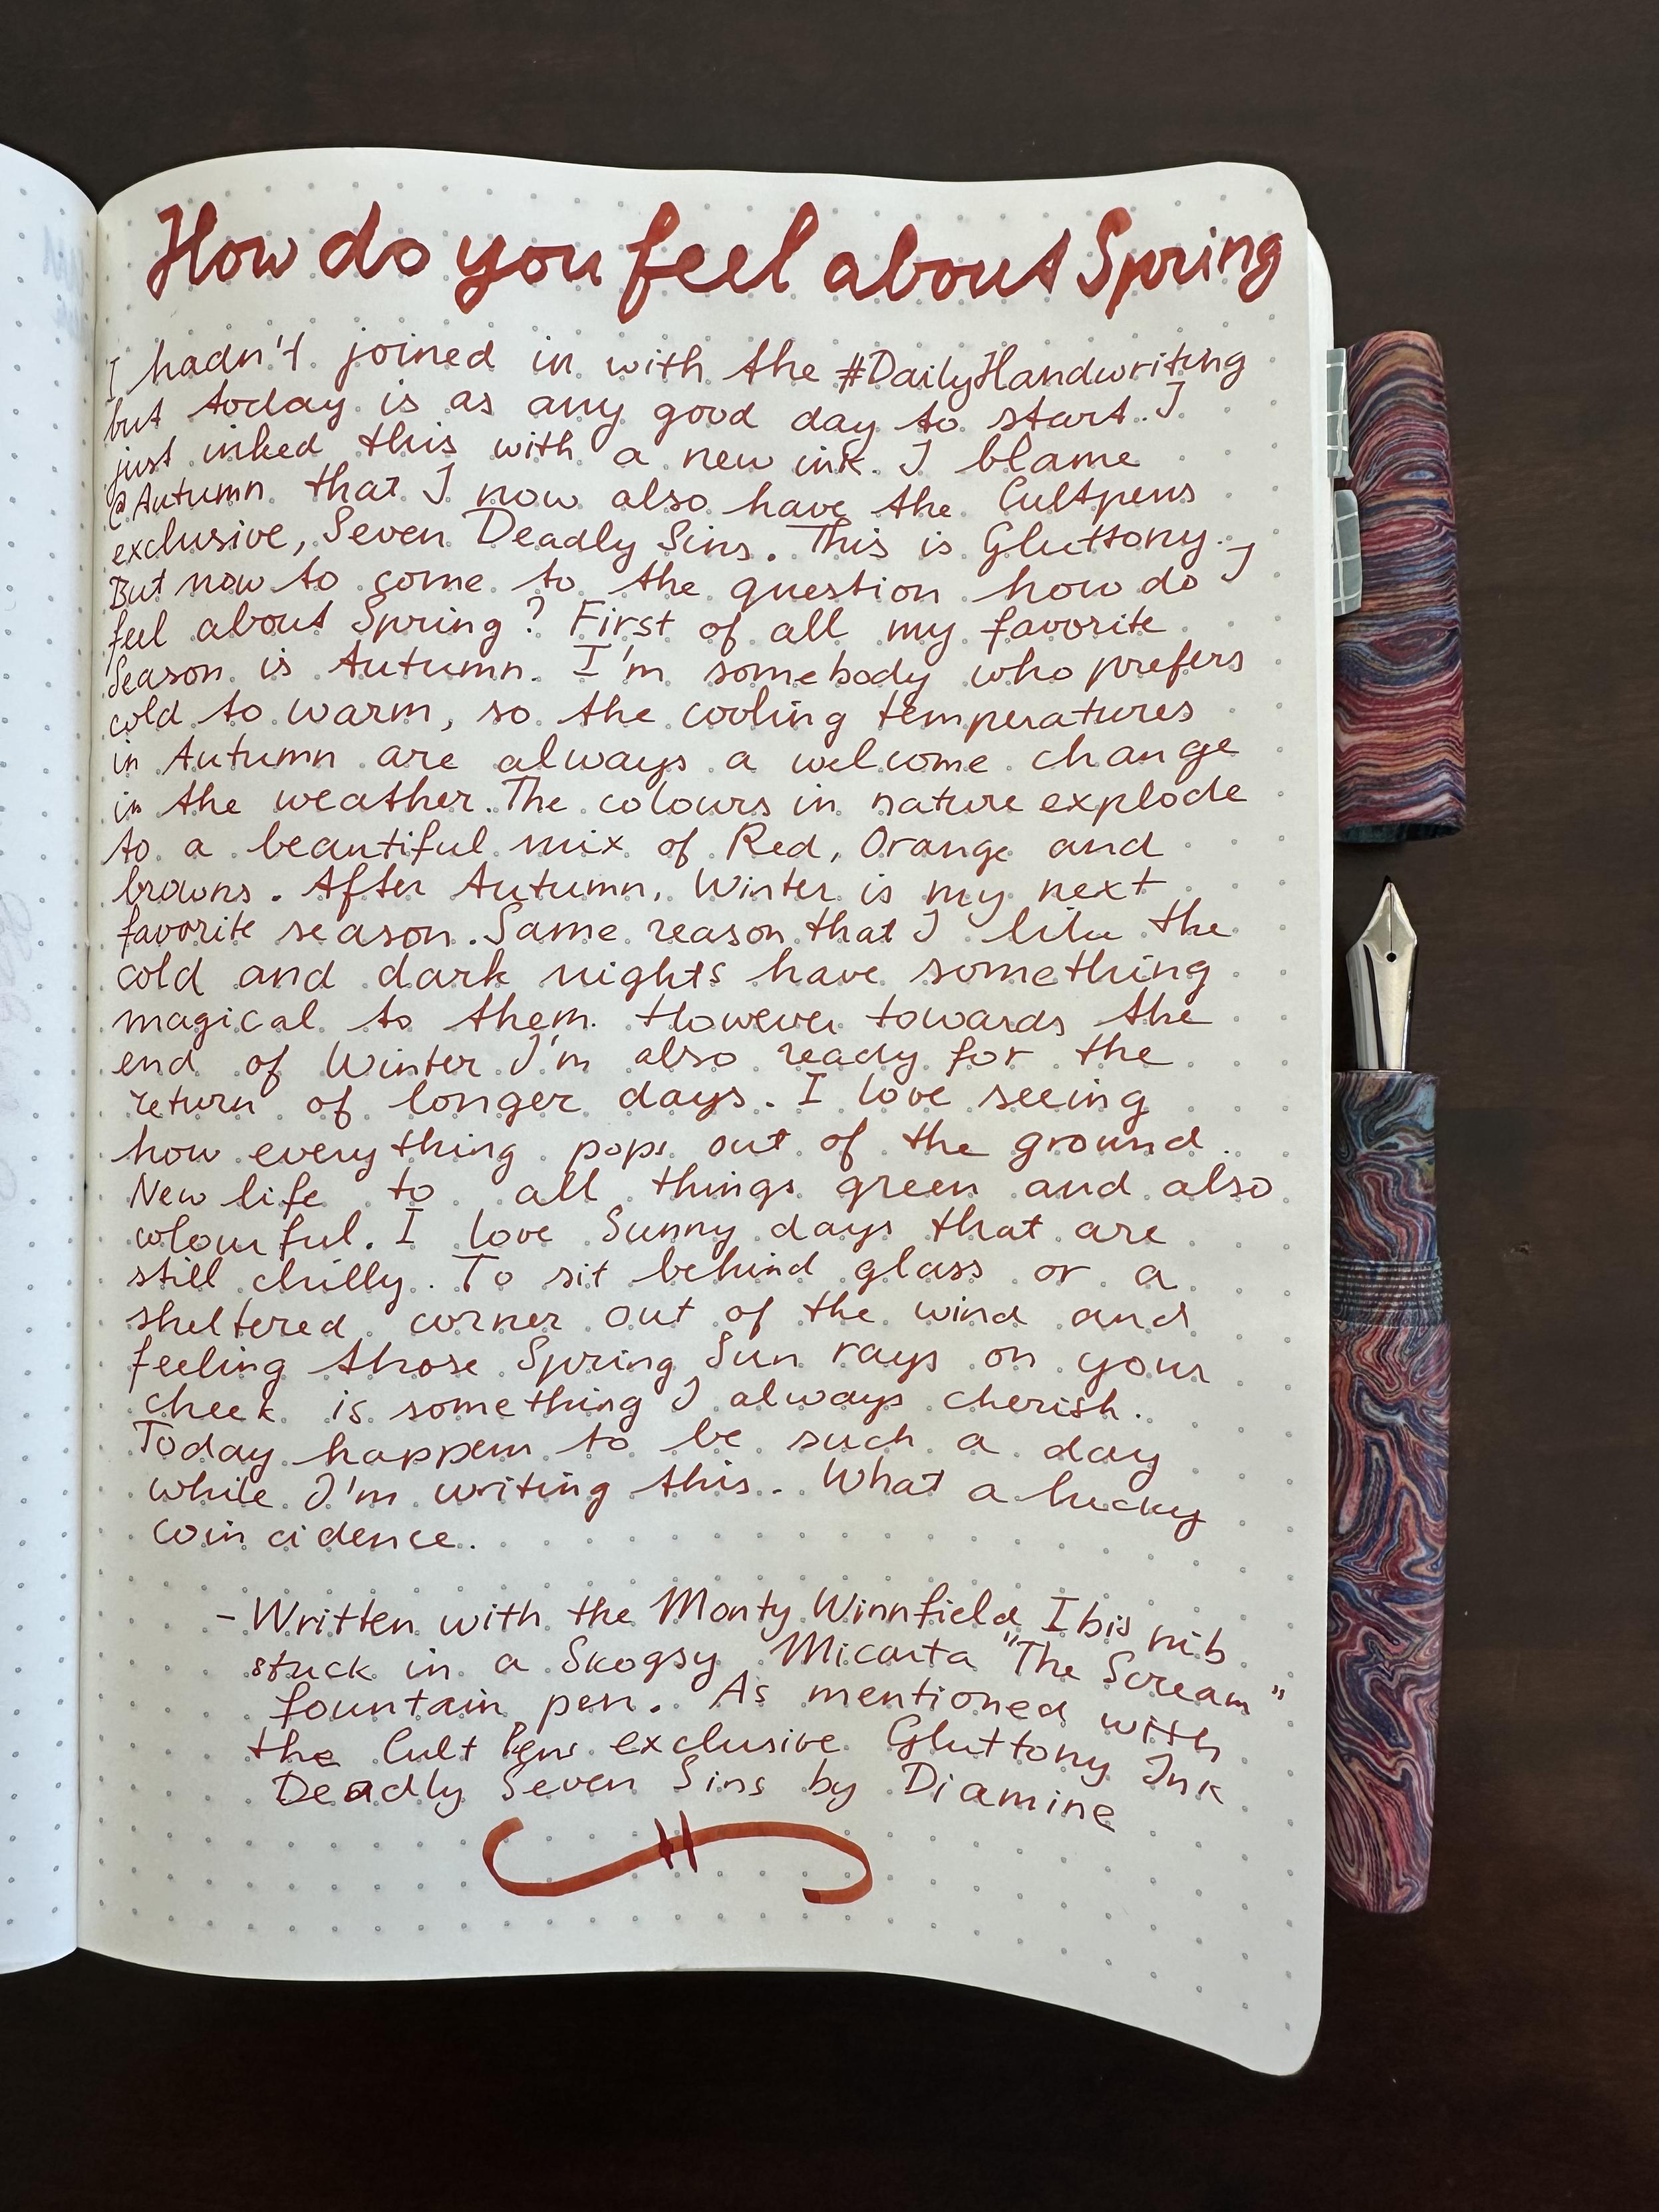 How do you feel about Spring
I hadn't joined in with the #DailyHandwriting
but today is as any good day to start. I
just inked this with a new ink. I blame
@Autumn that I now also have the Cultpens
exclusive, Seven Deadly Sins. This is Gluttony.
But now to come to the question how do I
feel about Spring? First of all my favorite
Season is Autumn. I'm somebody who prefers
cold to warm, so the cooling temperatures
in Autumn are always a welcome change
in the weather. The colours in nature explode
to a beautiful mix of Red, Orange and
browns. After Autumn, Winter is my next
favorite season. Same reason that I like the
cold and dark nights have something
magical to them. However towards the
end of Winter I'm also ready for the
return of longer days. I love seeing
how everything pops out of the ground.
New life to all things green and also
colourful. I love Sunny days that are
still chilly. To sit behind glass or a
sheltered corner out of the wind and
feeling those Spring Sun rays on your
cheek is something I always cherish.
Today happens to be such a day
while I'm writing this. What a lucky
coincidence.
- Written with the Monty Winnfield Ibis nib
stuck in a Skogsy Micarta "The Scream"
fountain pen. As mentioned with
the Cult Pens exclusive Gluttony Ink
Deadly Seven Sins by Diamine